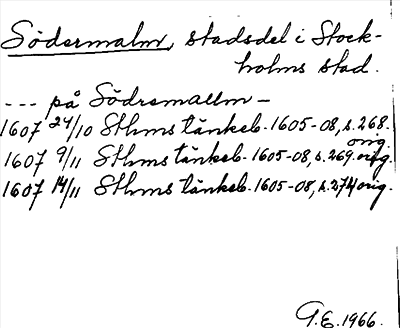 Södermalm, stadsdel i Stock-
holms stad.
--- på Södremallm -
1607 24/10 Sthms tänkeb. 1605-08, s. 268.
orig.
1607 9/11 Sthms tänkeb. 1605-08, s. 269. orig.
1607 14/11 Sthms tänkeb. 1605-08, s. 274 orig.
G.E. 1966.